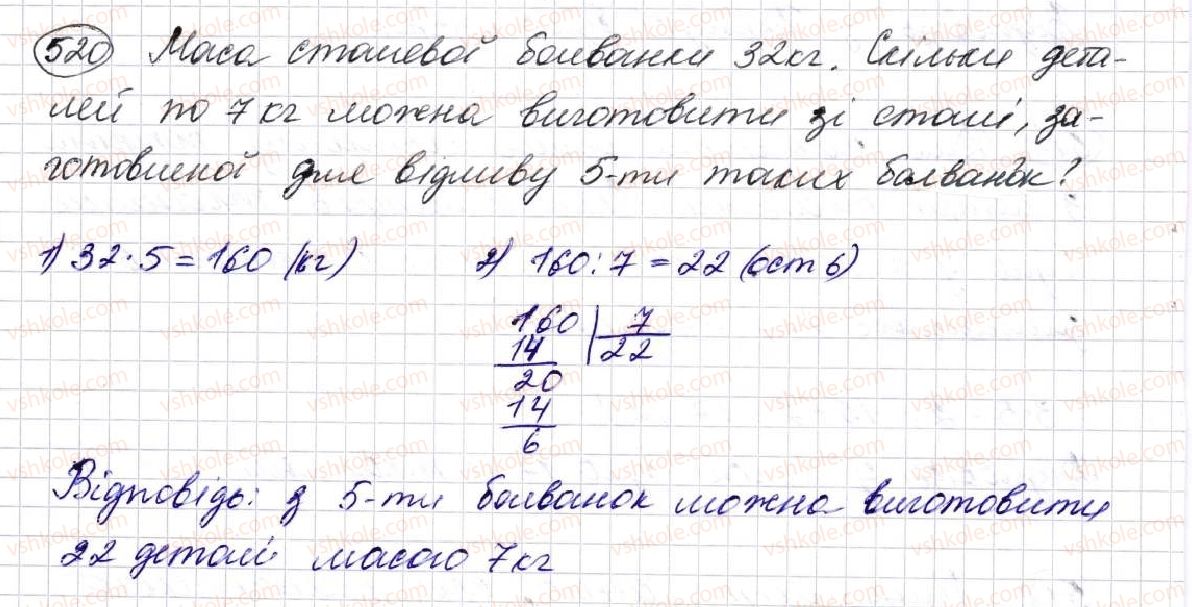 520 Маса сталевої болванки 32кг. Скільки дета-
лей по 7кг можна виготовити зі сталі, за-
готовленої для відливу 5-ти таких болванок?
1) 32·5=160 (кг) 2) 160:7=22 (ост 6)
160 7
14 22
20
14
6
Відповідь: з 5-ти болванок можна виготовити
22 деталі масою 7кг